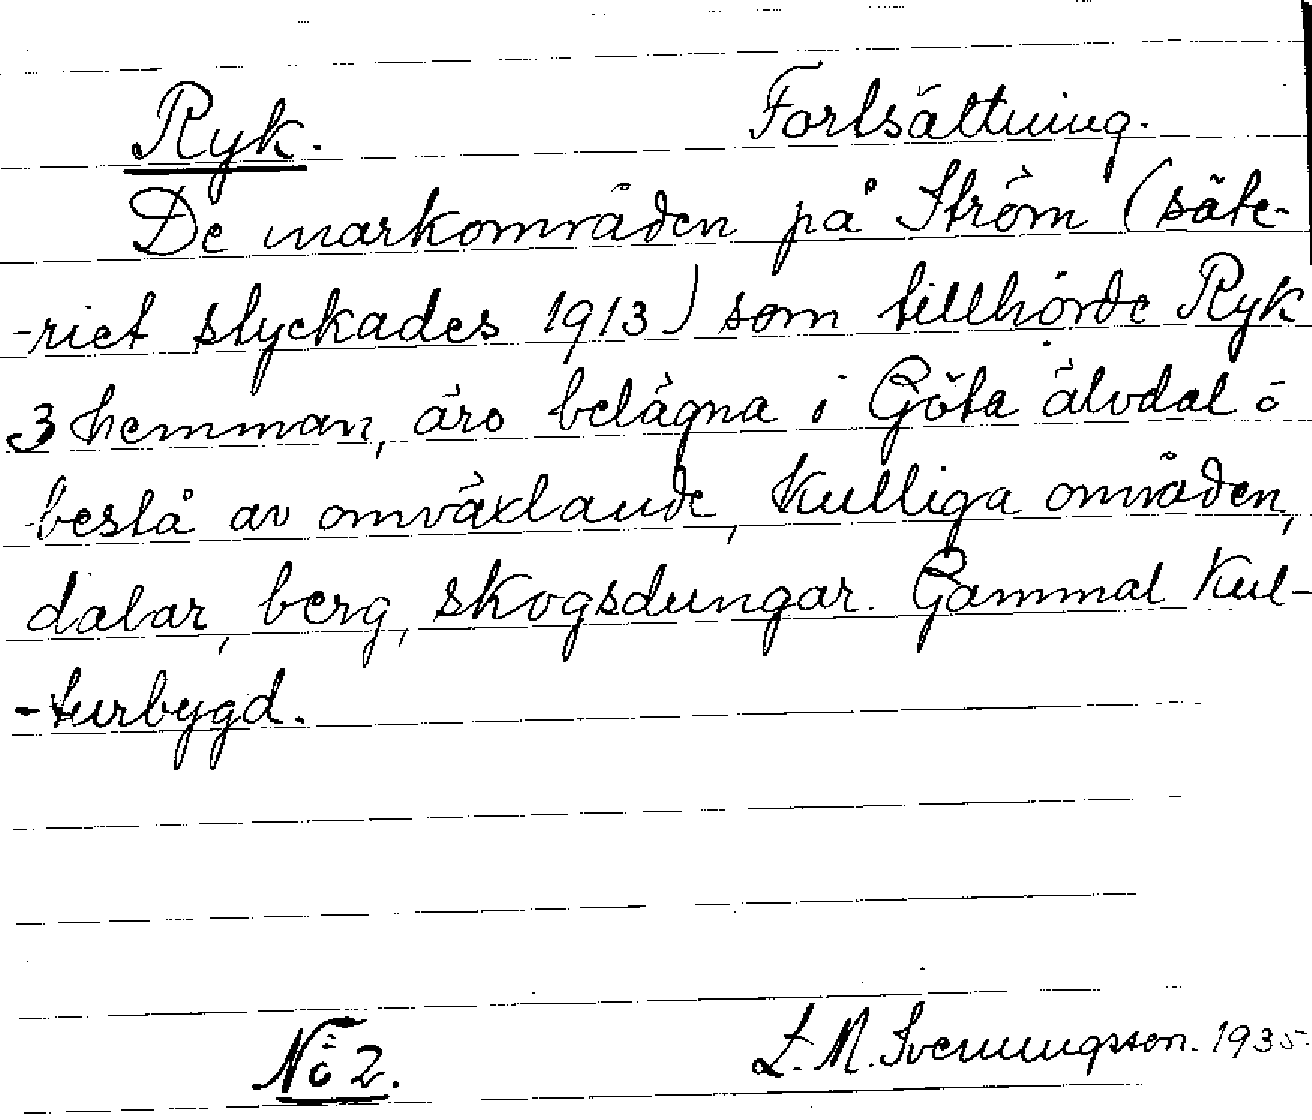 Ryk. Fortsättning.
De markområden på Ström (säte-
-riet styckades 1913) som tillhörde Ryk
3 hemman, äro belägna i Göta älvdal ö
bestå av omväxlande, kulliga områden,
dalar, berg, skogsdungar. Gammal kul-
-turbygd.
No 2. L. M. Svenungsson. 1935.